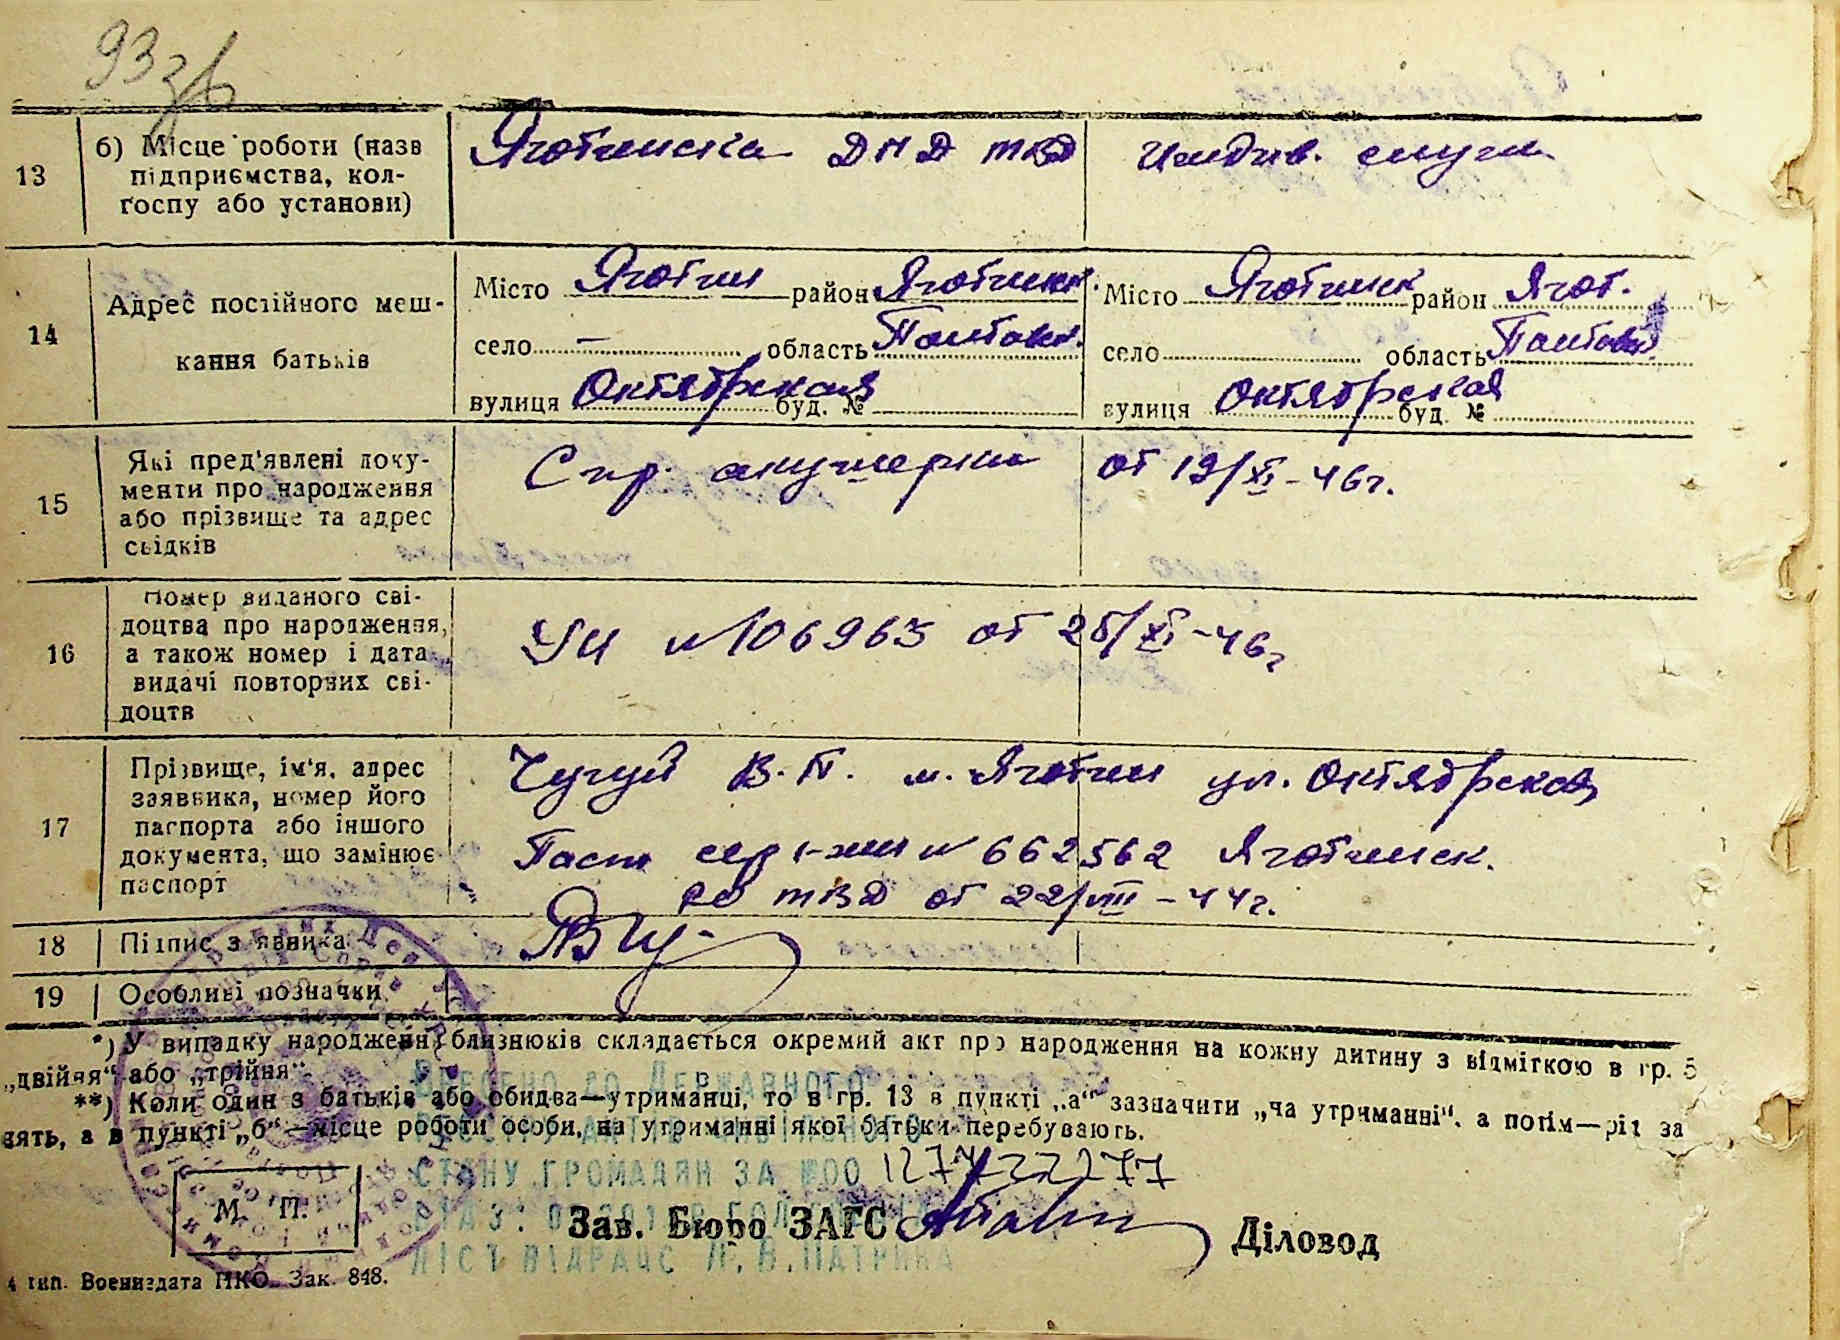 93 зв
13
б) Місце роботи (назв
підприємства, кол-
госпу або установи)
Яготинска
Индив.
14
Адрес постійного меш-
кання батьків
Місто Яготин район Яготинск.
село — область Полтавск.
вулиця Октябрьская буд. №
Місто Яготинск район Ягот.
село область Полтавск.
вулиця Октябрьская буд. №
15
Які пред'явлені доку-
менти про народження
або прізвище та адрес
свідків
Спр. акушерки от 19/XI-46г.
16
Номер виданого сві-
доцтва про народження,
а також номер і дата
видачі повторних сві-
доцтв
№ 106963 от 26/XI-46г
17
Прізвище, ім'я, адрес
заявника, номер його
паспорта або іншого
документа, що замінює
паспорт
Чугуй В. П. м. Яготин ул. Октябрьская
Пасп № 662562 Яготинск.
РО от 22/VIII-44г.
18
Підпис заявника
19
Особливі позначки
*) У випадку народження близнюків складається окремий акт про народження на кожну дитину з відміткою в гр. 5
„двійня“ або „трійня“
**) Коли один з батьків або обидва—утриманці, то в гр. 13 в пункті „а“ зазначити „на утриманні“, а потім—рід за
нять, а в пункті „б“—місце роботи особи, на утриманні якої батьки перебувають.
Внесено до Державного
реєстру актів цивільного
стану громадян за №00 12742277
М. П.
Зав. Бюро ЗАГС
Діловод
4 тип. Воениздата НКО. Зак. 848.